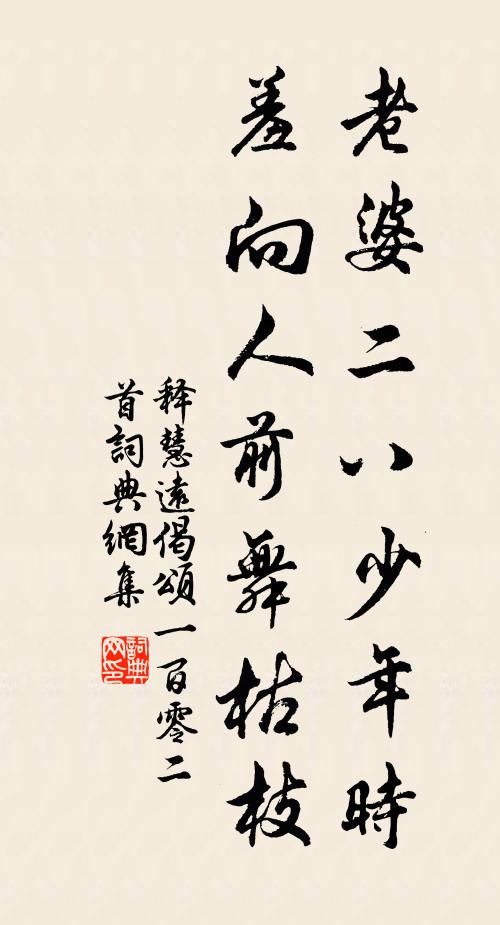 老婆二八少年時
羞向人前舞枯枝
释慧遠偈頌一百零二
首詞典網集
詞典網印